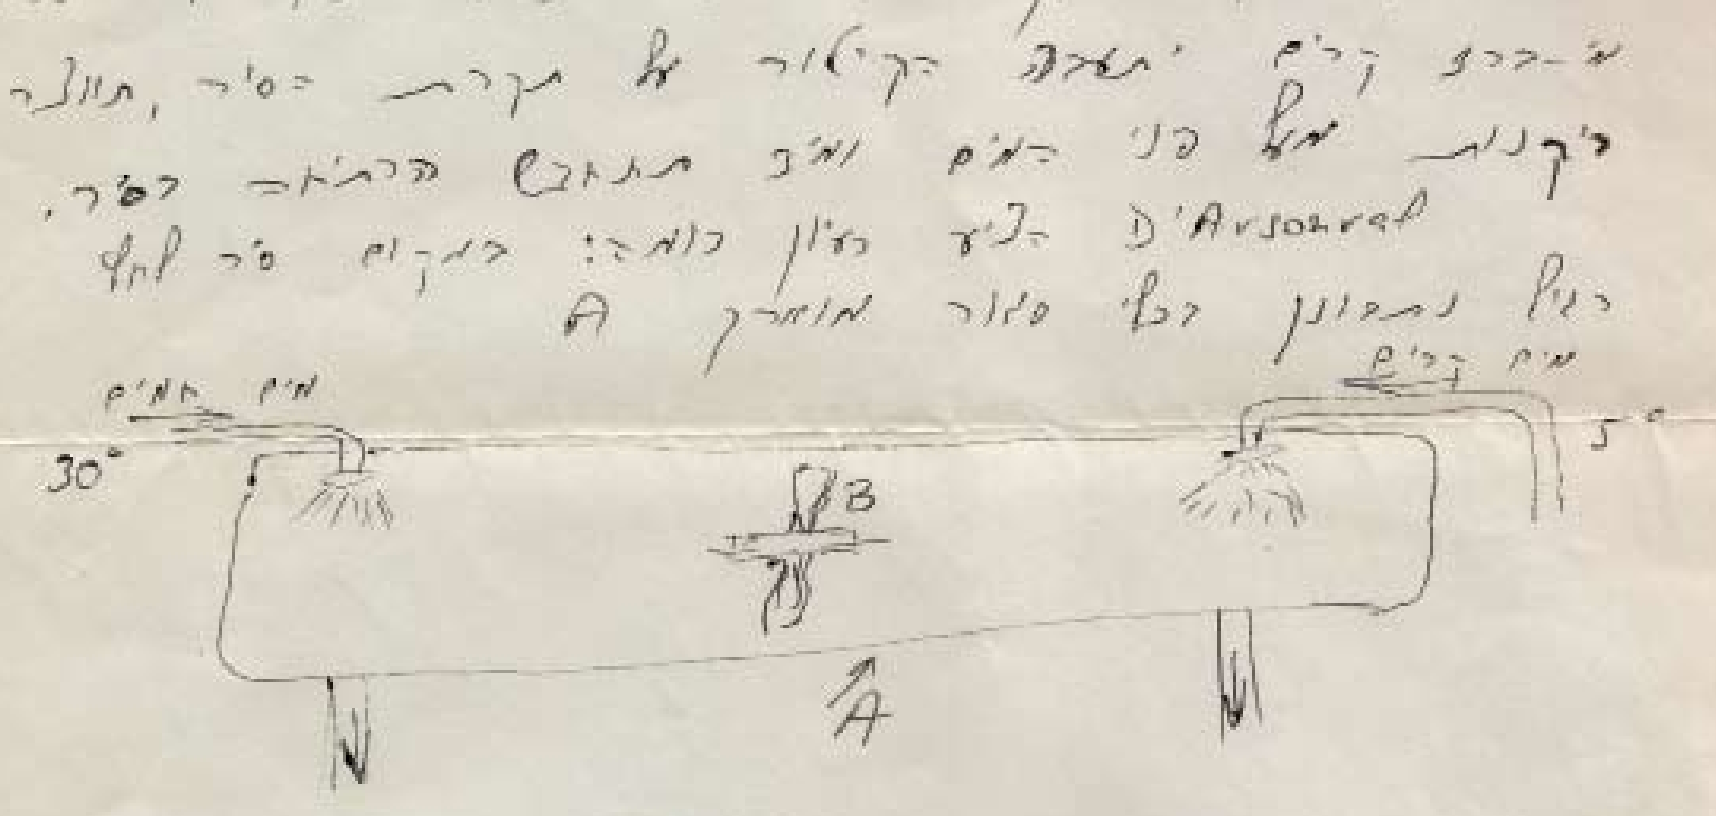 מ-ברז קרים יתעבה הקיטור על תקרת הסיר, תיווצר
ריקנות מעל פני המים ומיד תתחדש הרתיחה בסיר.
D'Arsonval הציע רעיון דומה: במקום סיר לחץ
רגיל נתבונן בכלי סגור מוארך A
מים חמים
מים קרים
30°
5°
B
A